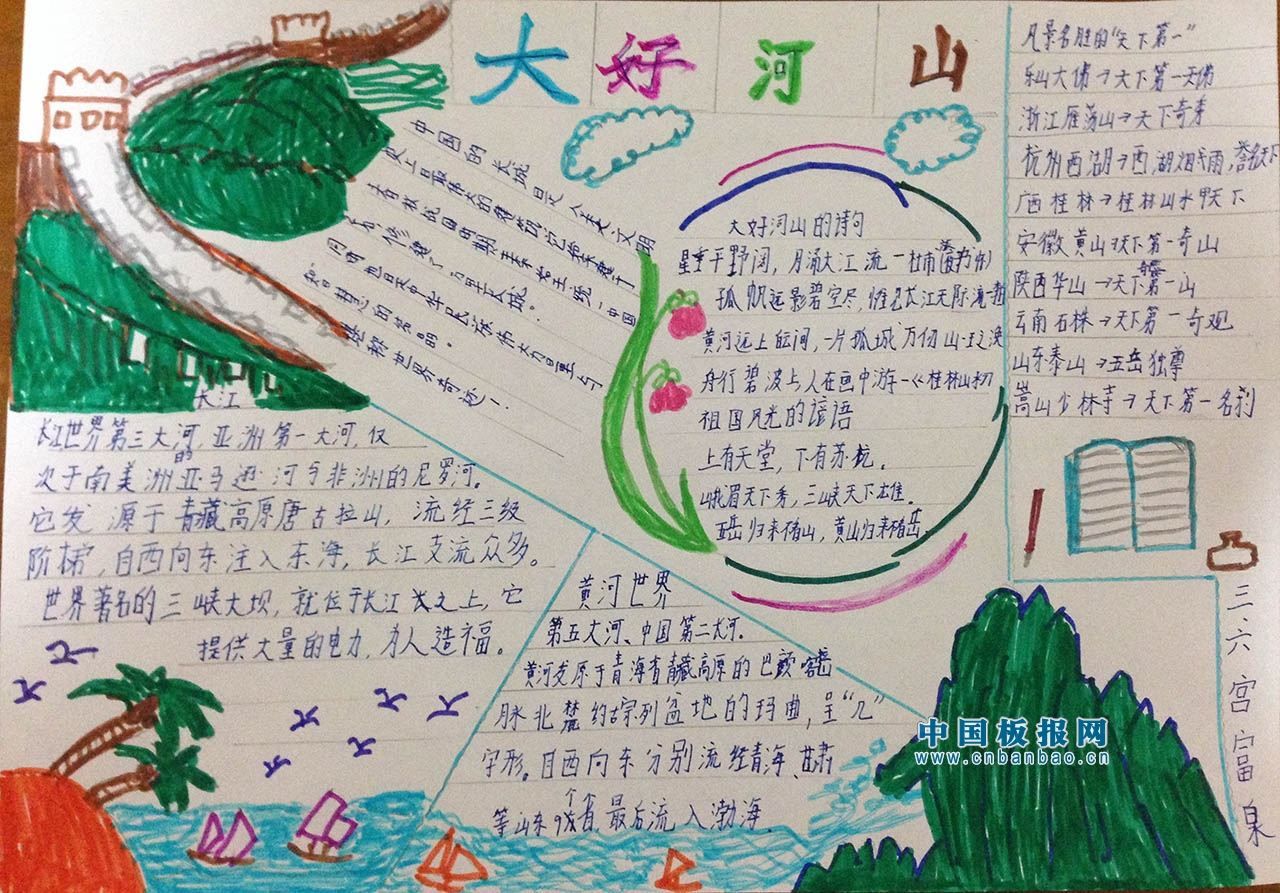 大好河山
中国的长城是人类文明
史上最伟大的建筑
春秋战国时期
修建了万里长城。
同时也是中华民族伟大力量与
智慧的结晶。
堪称世界奇迹！
大好河山的诗句
星垂平野阔，月涌大江流一杜甫
孤帆远影碧空尽，惟见长江天际流
黄河远上白云间，一片孤城万仞山一王之涣
舟行碧波上人在画中游一《桂林山水》
祖国风光的谚语
上有天堂，下有苏杭。
峨眉天下秀，三峡天下雄。
五岳归来不看山，黄山归来不看岳。
风景名胜的“天下第一”
乐山大佛→天下第一大佛
浙江雁荡山→天下奇秀
杭州西湖→西湖烟雨，誉名天下
广西桂林→桂林山水甲天下
安徽黄山→天下第一奇山
陕西华山→天下第一山
云南石林→天下第一奇观
山东泰山→五岳独尊
嵩山少林寺→天下第一名刹
长江
长江世界第三大河，亚洲第一大河，仅
次于南美洲的亚马逊河与非洲的尼罗河。
它发源于青藏高原唐古拉山，流经三级
阶梯，自西向东注入东海，长江支流众多。
世界著名的三峡大坝，就位于长江之上，它
提供大量的电力，为人造福。
黄河世界
第五大河、中国第二大河。
黄河发原于青海省青藏高原的巴颜喀
脉北麓约古宗列盆地的玛曲，呈“几”
字形。自西向东分别流经青海、甘肃
等山东9个省，最后流入渤海。
三、六宫富泉
中国板报网
www.cnbanbao.cn